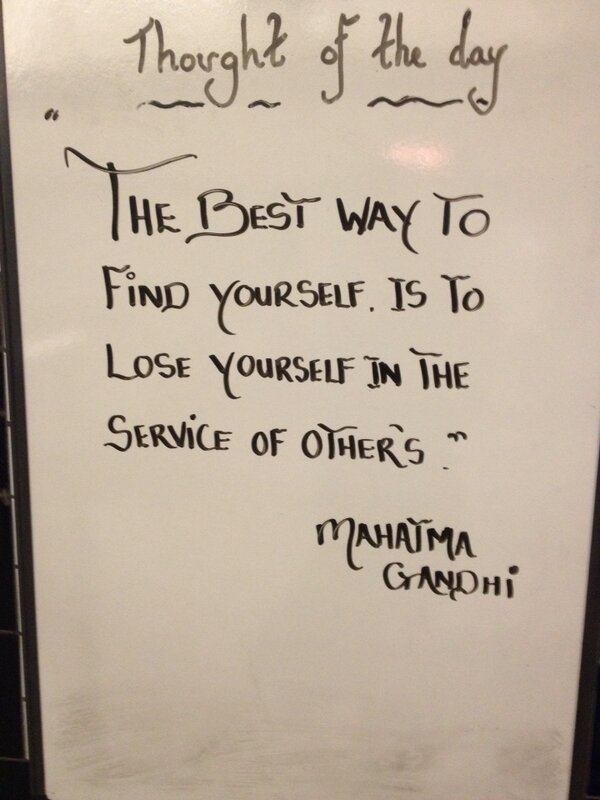 Thought of the day
"
THE BEST WAY TO
FIND YOURSELF. IS TO
LOSE YOURSELF IN THE
SERVICE OF OTHER'S."
MAHATMA
GANDHI